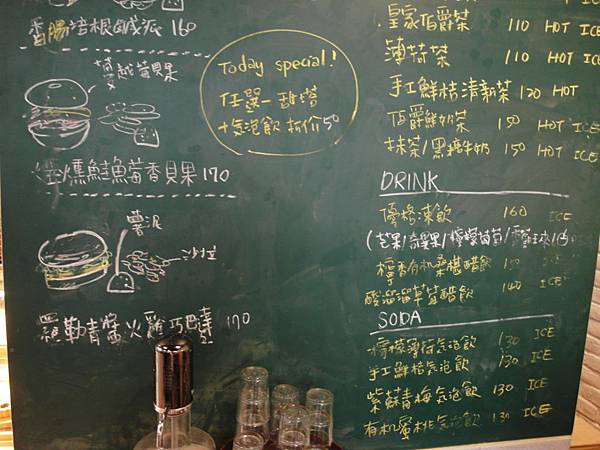 香腸培根鹹派 160
蔓越莓貝果
煙燻鮭魚茴香貝果 170
薯泥
沙拉
羅勒青醬火雞巧巴達 170
Today special!
任選一甜塔
+氣泡飲 折价50
皇家伯爵茶 110 HOT ICE
薄荷茶 110 HOT ICE
手工鮮桔清新茶 120 HOT
伯爵鮮奶茶 150 HOT ICE
抹茶/黑糖牛奶 150 HOT ICE
DRINK
優格凍飲 160 ICE
(芒果/奇異果/
檸香有机桑椹醋飲 ICE
酸溜溜草莓醋飲 140 ICE
SODA
檸檬薄荷氣泡飲 130 ICE
手工鮮桔氣泡飲 130 ICE
紫蘇青梅氣泡飲 130 ICE
有机蜜桃氣泡飲 130 ICE